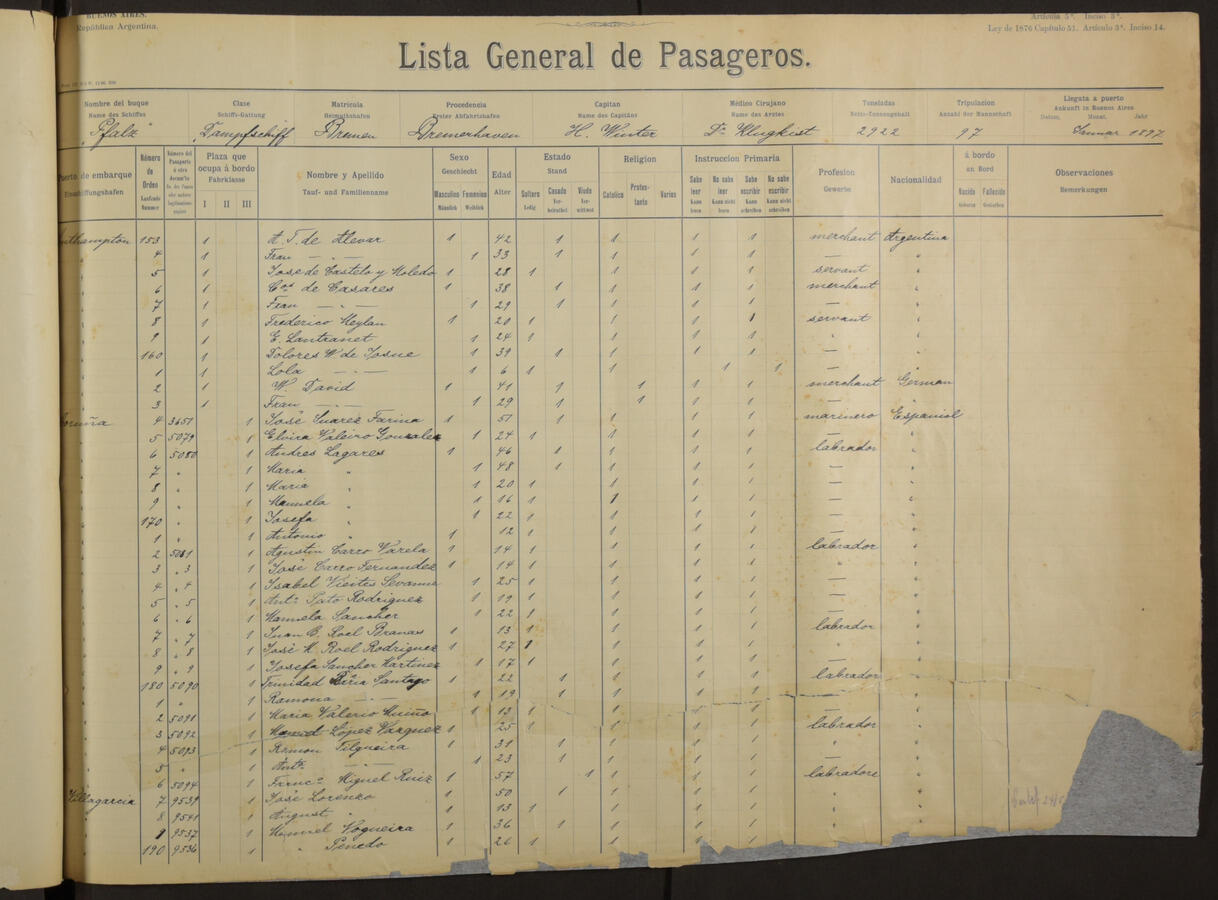 BUENOS AIRES.
República Argentina.
Artículo 5º. Inciso 3º.
Ley de 1876 Capítulo 51. Artículo 3º. Inciso 14.
Lista General de Pasageros.
Nombre del buque Clase Matrícula Procedencia Capitan Médico Cirujano Toneladas Tripulacion Llegata a puerto
Name des Schiffes Schiffs-Gattung Heimathshafen Erster Abfahrtshafen Name des Capitäns Name des Arztes Netto-Tonnengehalt Anzahl der Mannschaft Ankunft in Buenos Aires
Datum. Monat. Jahr
"Pfalz" Dampfschiff Bremen Bremerhaven H. Winter Dr. Klugkist 2922 97 Januar 1897
Puerto de embarque Einschiffungshafen
Número de Orden Laufende Nummer
Plaza que ocupa á bordo Fahrklasse I II III
Nombre y Apellido Tauf- und Familienname
Sexo Geschlecht Masculino Männlich Femenino Weiblich
Edad Alter
Estado Stand Soltero Ledig Casado Verheirathet Viudo Verwittwet
Religion Católico Protestante Varios
Instruccion Primaria Sabe leer Kann lesen No sabe leer Kann nicht lesen Sabe escribir Kann schreiben No sabe escribir Kann nicht schreiben
Profesion Gewerbe
Nacionalidad
á bordo an Bord Nacido Geboren Fallecido Gestorben
Observaciones Bemerkungen
Southampton 153 1 A. T. de Alevar 1 42 1 1 1 1 merchant Argentina
" 4 1 Frau — " — 1 33 1 1 1 1 — "
" 5 1 Jose de Castelo y Moledo 1 28 1 1 1 1 servant "
" 6 1 Cos de Casares 1 38 1 1 1 1 merchant "
" 7 1 Frau — " — 1 29 1 1 1 1 — "
" 8 1 Frederico Meylan 1 20 1 1 1 1 servant "
" 9 1 E. Lantranet 1 24 1 1 1 1 — "
" 160 1 Dolores W de Josue 1 39 1 1 1 1 — "
" 1 1 Lola — " — 1 6 1 1 1 1 — "
" 2 1 W. David 1 41 1 1 1 1 merchant German
" 3 1 Frau — " — 1 29 1 1 1 1 — "
Coruña 4 3651 1 José Suarez Farina 1 51 1 1 1 1 marinero Espaniol
" 5 5079 1 Elvira Valeiro Gonzalez 1 24 1 1 1 1 — "
" 6 5080 1 Andres Lagares 1 46 1 1 1 1 labrador "
" 7 " 1 Maria " 1 48 1 1 1 1 — "
" 8 " 1 Maria " 1 20 1 1 1 1 — "
" 9 " 1 Manuela " 1 16 1 1 1 1 — "
" 170 " 1 Josefa " 1 22 1 1 1 1 — "
" 1 " 1 Antonio " 1 12 1 1 1 1 — "
" 2 5081 1 Agustin Carro Varela 1 14 1 1 1 1 labrador "
" 3 " 3 1 José Carro Fernandez 1 14 1 1 1 1 " "
" 4 " 4 1 Isabel Vieites 1 25 1 1 1 1 — "
" 5 " 5 1 Anta Soto Rodriguez 1 19 1 1 1 1 — "
" 6 " 6 1 Manuela Sancher 1 22 1 1 1 1 — "
" 7 " 7 1 Juan B. Roel Branas 1 13 1 1 1 1 labrador "
" 8 " 8 1 José M. Roel Rodriguez 1 27 1 1 1 1 " "
" 9 " 9 1 Josefa Sancher Martinez 1 17 1 1 1 1 — "
" 180 5090 1 Trinidad Santiago 1 22 1 1 1 1 labrador "
" 1 " 1 Ramona — " — 1 19 1 1 1 1 — "
" 2 5091 1 Maria Valerio Muiño 1 13 1 1 1 1 — "
" 3 5092 1 Manuel López Vazquez 1 25 1 1 1 1 labrador "
" 4 5093 1 Ramon Filgueira 1 31 1 1 1 1 " "
" 5 " 1 Anta — " — 1 23 1 1 1 1 — "
" 6 5094 1 Franco Miguel Ruiz 1 57 1 1 1 1 labradore "
Villagarcia 7 9539 1 José Lorenzo 1 50 1 1 1 1 " "
" 8 9541 1 August. " 1 13 1 1 1 1 " "
" 9 9537 1 Manuel Nogueira 1 36 1 1 1 1 " "
" 190 9536 1 " Penedo 1 26 1 1 1 1 " "